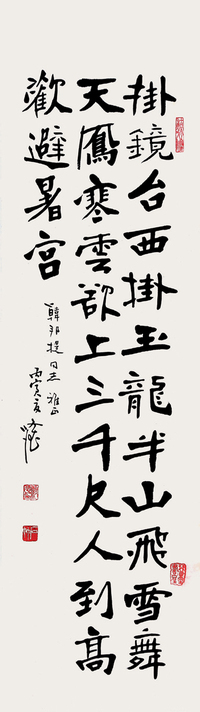 掛鏡台西掛玉龍半山飛雪舞
天鳳寒雲欲上三千尺人到高
歡避暑宮
韓邦挺同志雅正
丙寅